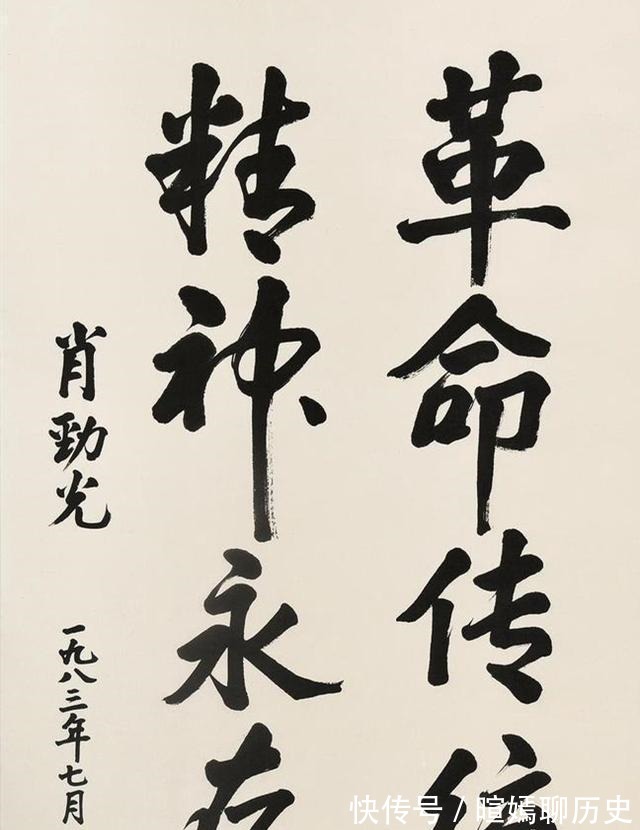 革命传
精神永
肖劲光
一九八三年七月
快传号／暄嫣聊历史